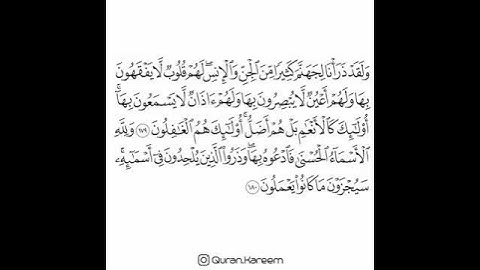 وَلَقَدْ ذَرَأْنَا لِجَهَنَّمَ كَثِيرًا مِّنَ ٱلْجِنِّ وَٱلْإِنسِ ۖ لَهُمْ قُلُوبٌ لَّا يَفْقَهُونَ
بِهَا وَلَهُمْ أَعْيُنٌ لَّا يُبْصِرُونَ بِهَا وَلَهُمْ ءَاذَانٌ لَّا يَسْمَعُونَ بِهَآ ۚ
أُو۟لَـٰٓئِكَ كَٱلْأَنْعَـٰمِ بَلْ هُمْ أَضَلُّ ۚ أُو۟لَـٰٓئِكَ هُمُ ٱلْغَـٰفِلُونَ ١٧٩ وَلِلَّهِ
ٱلْأَسْمَآءُ ٱلْحُسْنَىٰ فَٱدْعُوهُ بِهَا ۖ وَذَرُوا۟ ٱلَّذِينَ يُلْحِدُونَ فِىٓ أَسْمَـٰٓئِهِۦ ۚ
سَيُجْزَوْنَ مَا كَانُوا۟ يَعْمَلُونَ ١٨٠
Quran.Kareem